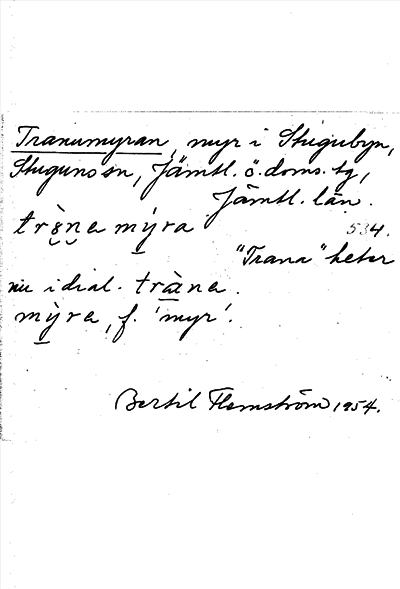 Tranumyran, myr i Stugubyn,
Stuguns sn, Jämtl. ö. doms. tg,
Jämtl. län.
trò̤n̯e mýra 534.
"Trana" heter
nu i dial. tràna.
mỳra, f. 'myr'.
Bertil Flemström 1954.